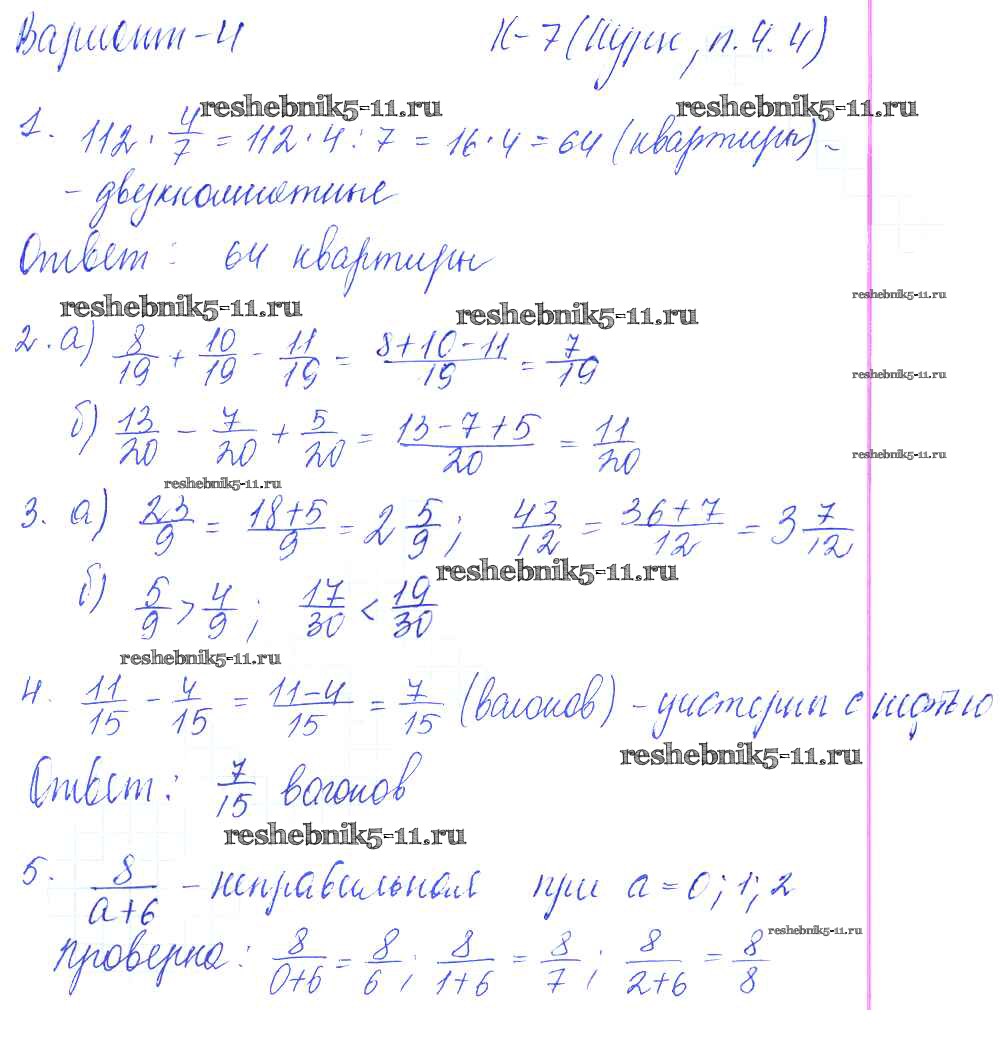 Вариант-4 К-7 (Нурк, п. 4.4)
reshebnik5-11.ru reshebnik5-11.ru
1. 112 · 4/7 = 112 · 4 : 7 = 16 · 4 = 64 (квартиры) -
- двухкомнатные
Ответ: 64 квартиры
reshebnik5-11.ru reshebnik5-11.ru reshebnik5-11.ru
2. а) 8/19 + 10/19 - 11/19 = (8+10-11)/19 = 7/19
reshebnik5-11.ru
б) 13/20 - 7/20 + 5/20 = (13-7+5)/20 = 11/20
reshebnik5-11.ru
reshebnik5-11.ru
3. а) 23/9 = (18+5)/9 = 2 5/9; 43/12 = (36+7)/12 = 3 7/12
reshebnik5-11.ru
б) 5/9 > 4/9; 17/30 < 19/30
reshebnik5-11.ru
4. 11/15 - 4/15 = (11-4)/15 = 7/15 (вагонов) - цистерны с нефтью
reshebnik5-11.ru
Ответ: 7/15 вагонов
reshebnik5-11.ru
5. 8/(а+6) - неправильная при а = 0; 1; 2
reshebnik5-11.ru
проверка: 8/(0+6) = 8/6; 8/(1+6) = 8/7; 8/(2+6) = 8/8